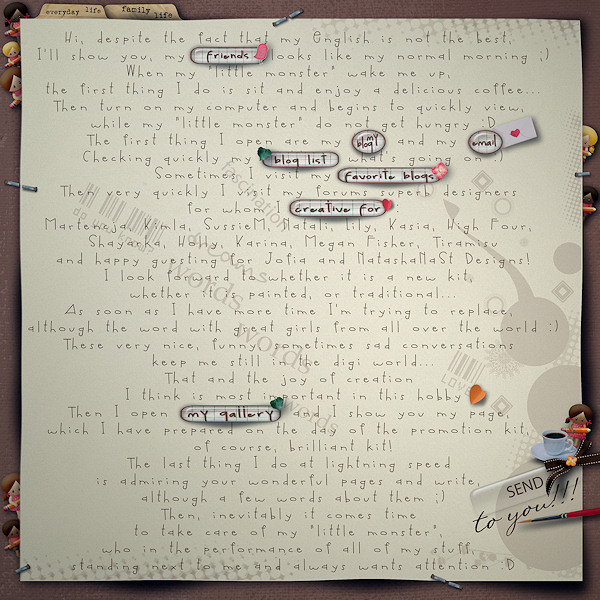 everyday life
family life
Hi, despite the fact that my English is not the best,
I'll show you, my friends looks like my normal morning ;)
When my "little monster" wake me up,
the first thing I do is sit and enjoy a delicious coffee...
Then turn on my computer and begins to quickly view,
while my "little monster" do not get hungry :D
The first thing I open are my my blog and my email
Checking quickly my blog list what's going on :)
Sometimes I visit my favorite blogs
Then very quickly I visit my forums superb designers
for whom creative for :
Marteneja, Kimla, SussieM, Natali, Lily, Kasia, High Four,
Shayacka, Holly, Karina, Megan Fisher, Tiramisu
and happy guesting for Jofia and NatashaNaSt Designs!
I look forward to whether it is a new kit,
whether it is painted, or traditional...
As soon as I have more time I'm trying to replace,
although the word with great girls from all over the world :)
These very nice, funny, sometimes sad conversations
keep me still in the digi world...
That and the joy of creation
I think is most important in this hobby
Then I open my gallery and I show you my page,
which I have prepared on the day of the promotion kit,
of course, brilliant kit!
The last thing I do at lightning speed
is admiring your wonderful pages and write,
although a few words about them ;)
Then, inevitably it comes time
to take care of my "little monster",
who in the performance of all of my stuff,
standing next to me and always wants attention :D
words words
words
LOVE
SEND
to you!!!